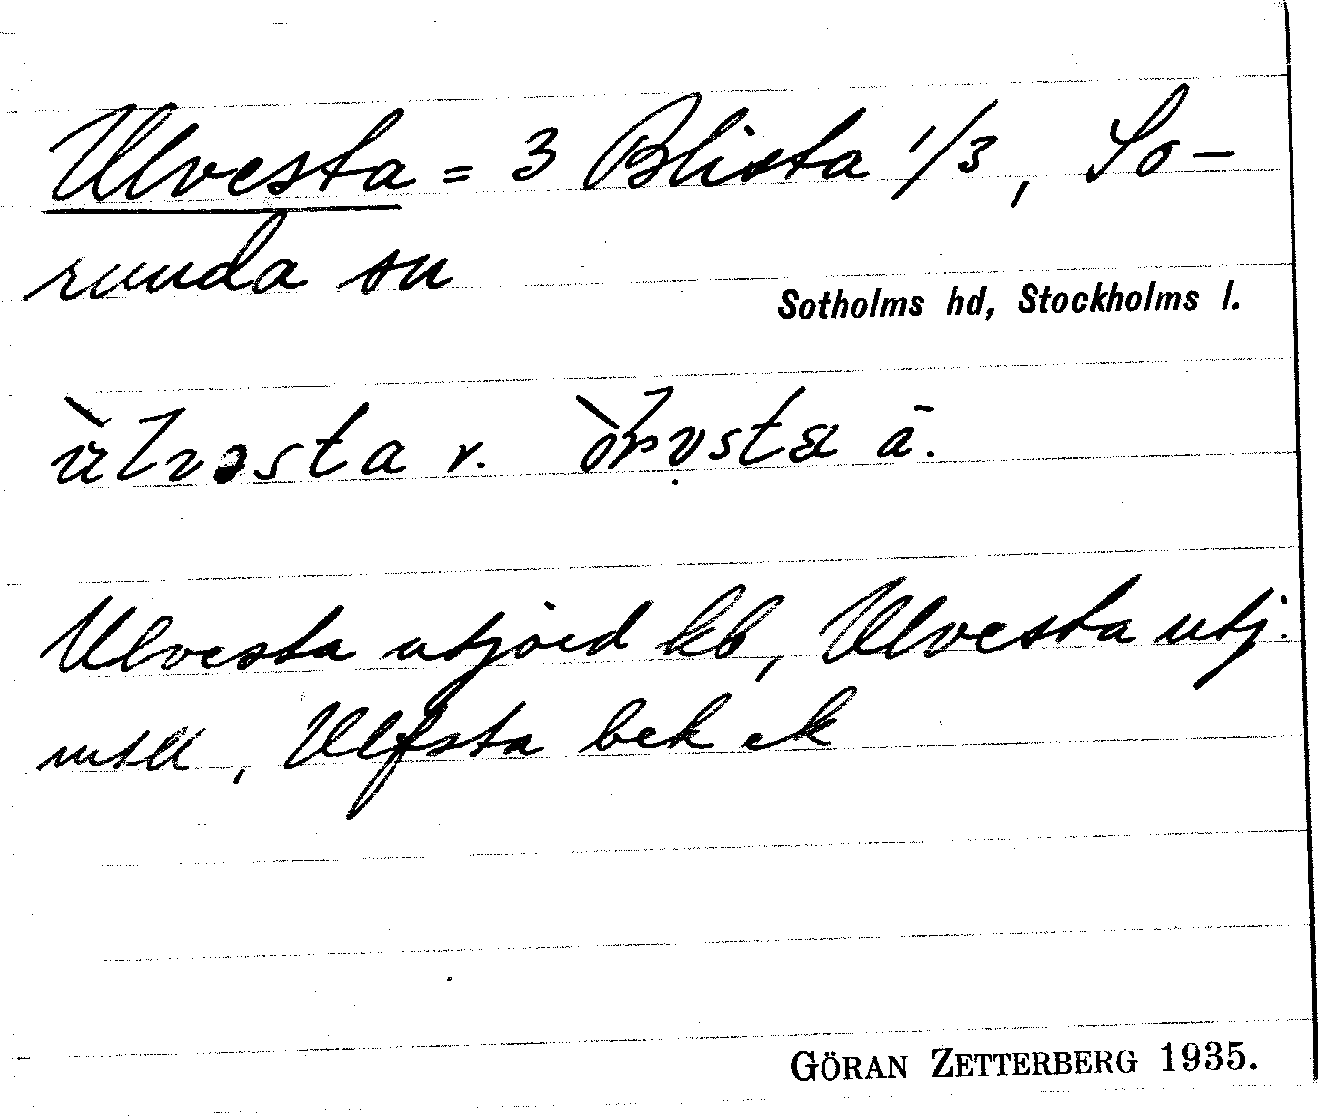 Ulvesta = 3 Blista 1/3, So-
runda sn
Sotholms hd, Stockholms l.
v. ä.
Ulvesta utjord kb, Ulvesta utj.
Ulfsta bek ek
GÖRAN ZETTERBERG 1935.